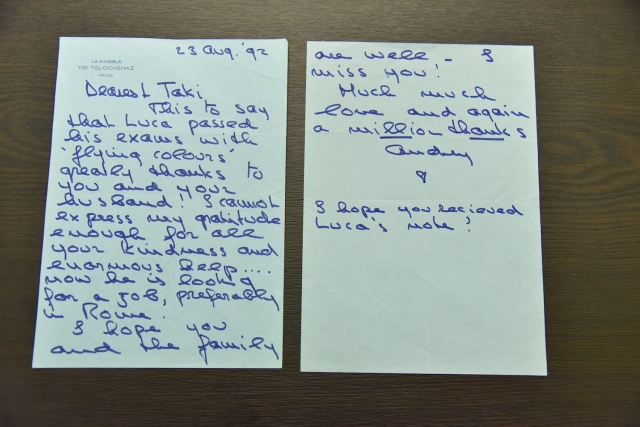 LA PAISIBLE
1131 TOLOCHENAZ
VAUD
23 Aug. '92
Dearest Taki
This to say
that Luca passed
his exams with
'flying colours'
greatly thanks to
you and your
husband! I cannot
express my gratitude
enough for all
your kindness and
enormous help....
now he is looking
for a job, preferably
in Rome.
I hope you
and the family
are well – I
miss you!
Much much
love and again
a million thanks
Audrey
&
I hope you recieved
Luca's note!